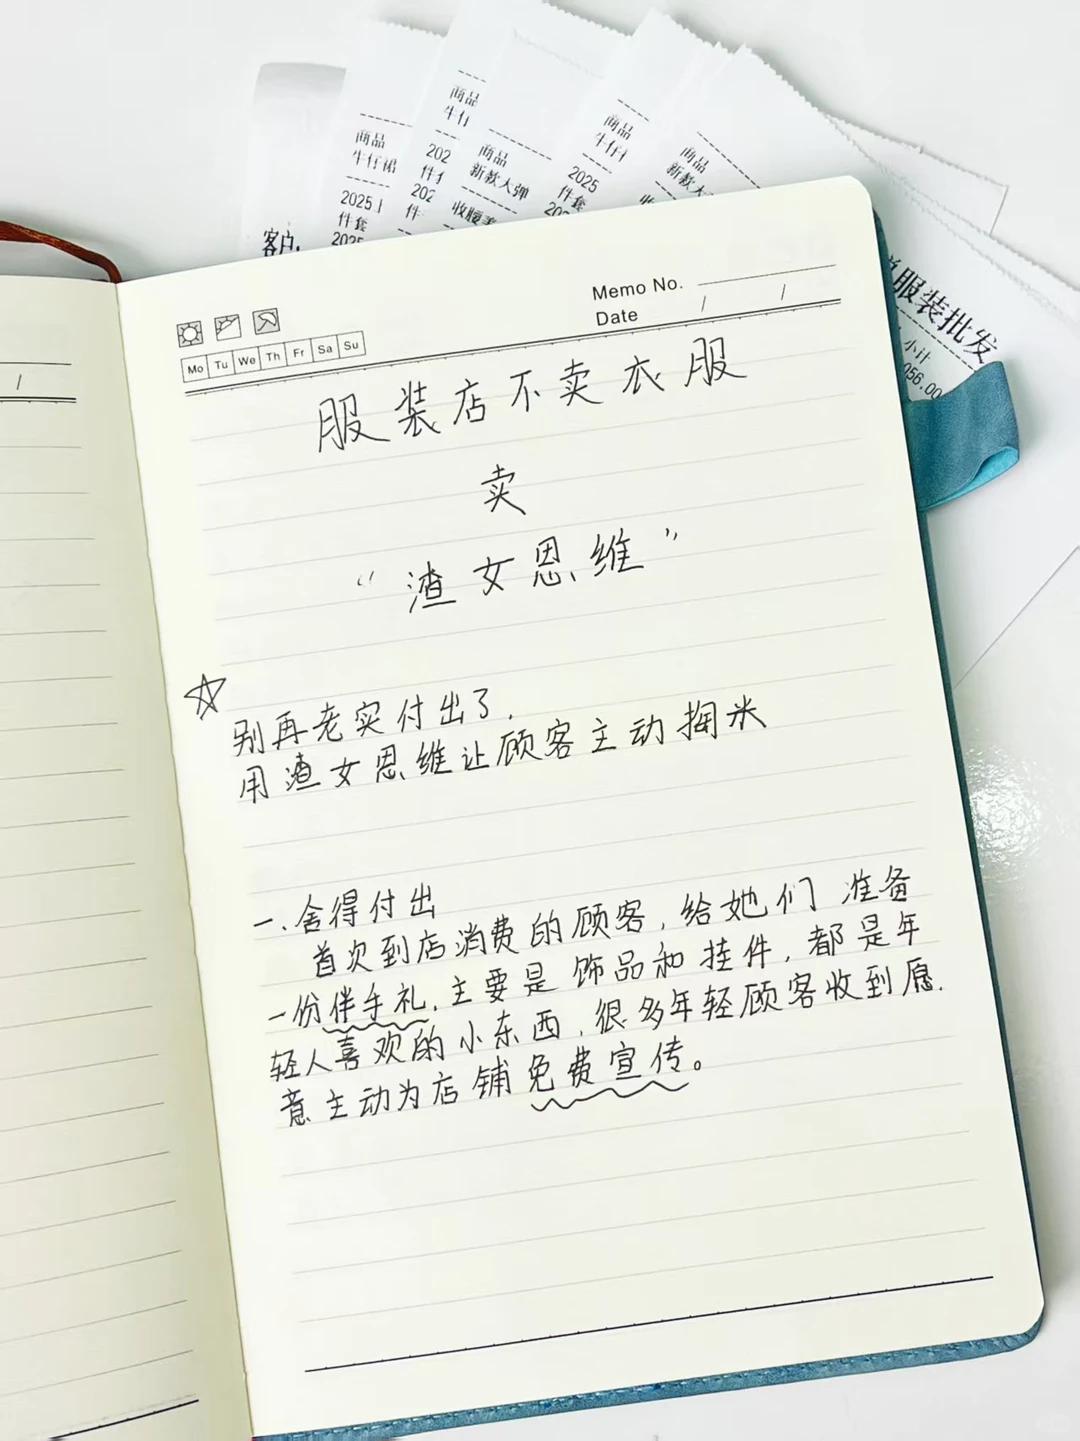 商品
牛仔裙
2025
件套
2025
客户
商品
牛仔
202
件
202
件
商品
新款大弹
收腰
商品
牛仔
2025
件套
商品
新款大
服装批发
小计
056.00
Memo No.
Date / /
Mo Tu We Th Fr Sa Su
/
服装店不卖衣服
卖
“渣女思维”
别再老实付出了，
用渣女思维让顾客主动掏米
一、舍得付出
首次到店消费的顾客，给她们准备
一份伴手礼，主要是饰品和挂件，都是年
轻人喜欢的小东西，很多年轻顾客收到愿
意主动为店铺免费宣传。